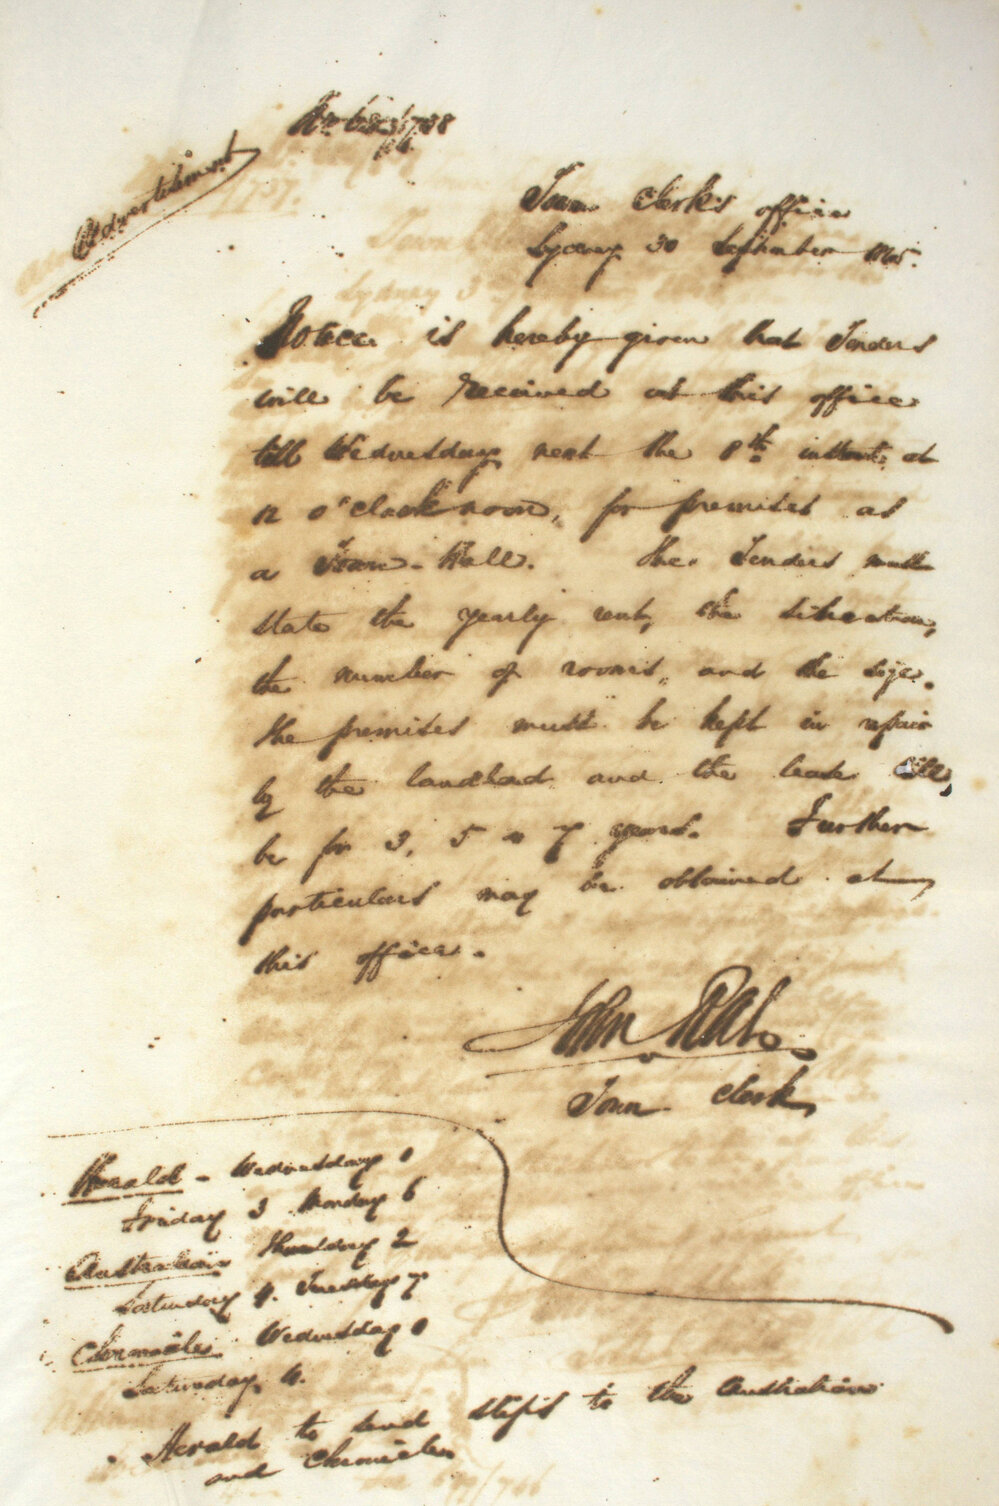 Advertisement
Town Clerk's office
Sydney 30 September
Notice is hereby given that Tenders
will be received at this office
till Wednesday next the 8th instant, at
12 o'clock noon, for premises as
a Town-Hall. The Tenders must
state the yearly rent, the situation,
the number of rooms, and the size.
The premises must be kept in repair
by the landlord and the lease will
be for 3, 5 or 7 years. Further
particulars may be obtained at
this office.
John Rae
Town Clerk
Herald - Wednesday 1
Friday 3 Monday 6
Australian Thursday 2
Saturday 4. Tuesday 7
Chronicle Wednesday 1
Saturday 4.
Herald to send slips to the Australian
and Chronicle